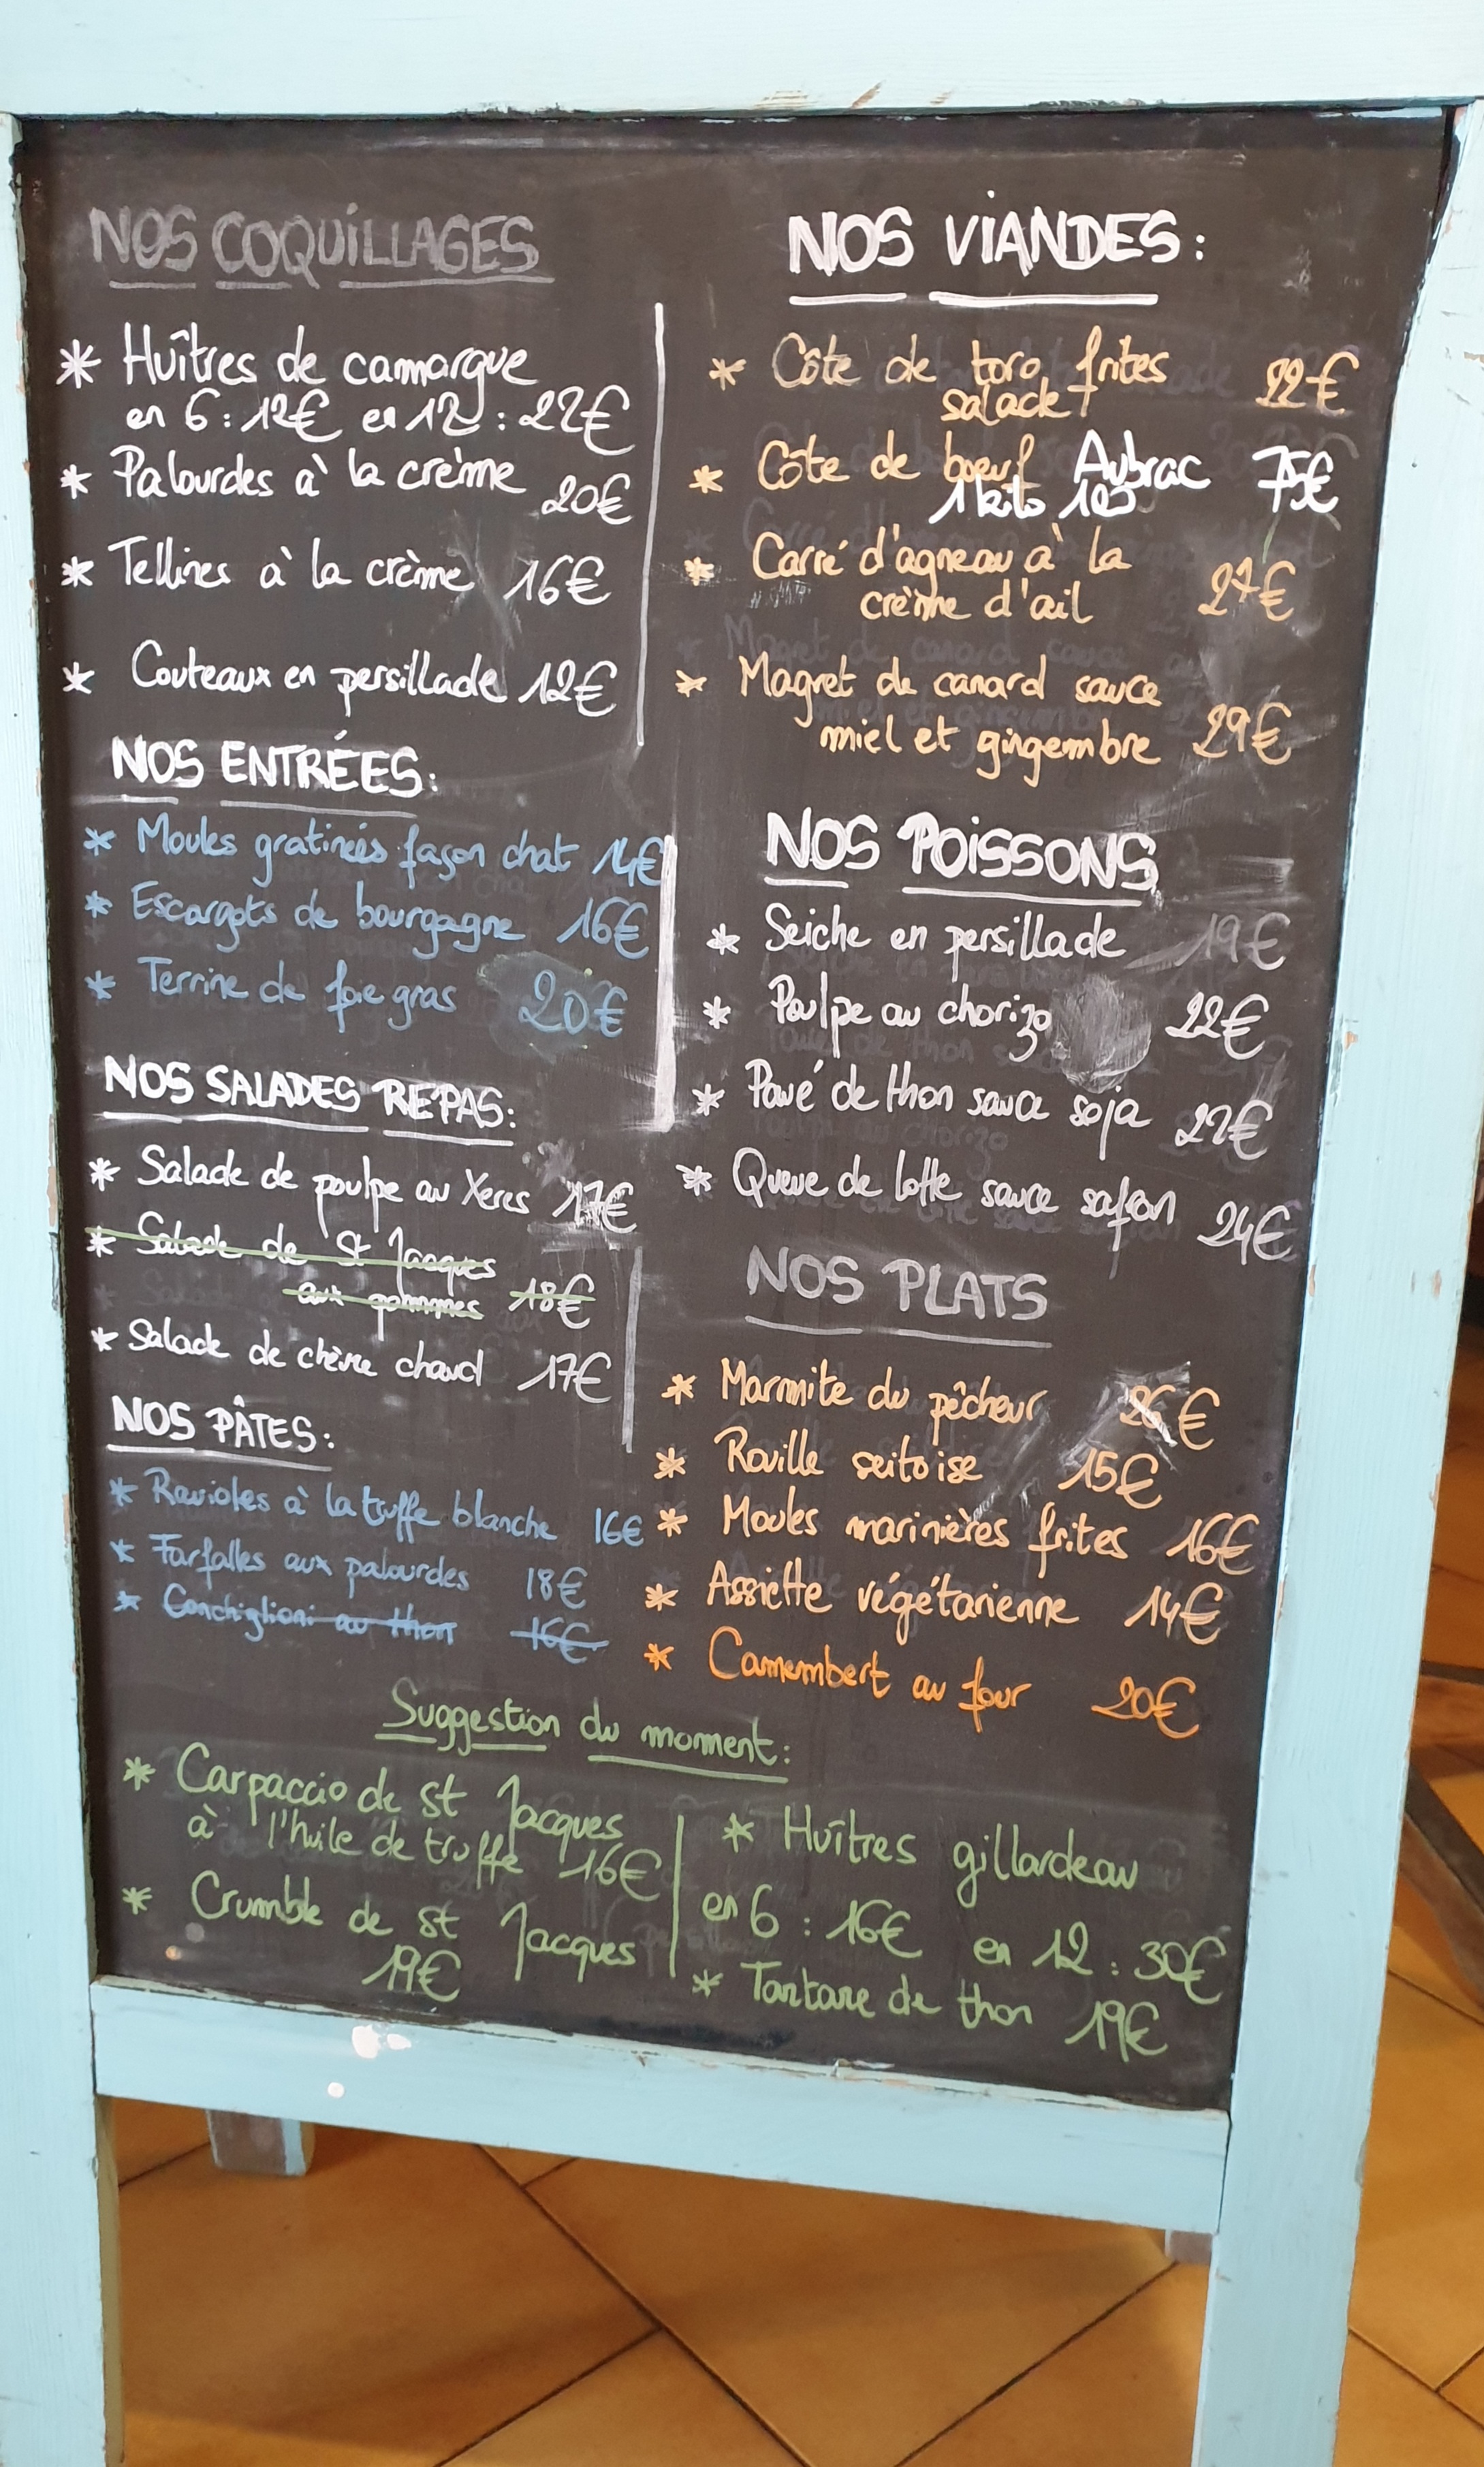 NOS COQUILLAGES
* Huîtres de camargue
en 6 : 12€ en 12 : 22€
* Palourdes à la crème 20€
* Tellines à la crème 16€
* Couteaux en persillade 12€
NOS ENTRÉES :
* Moules gratinées façon chat 14€
* Escargots de bourgogne 16€
* Terrine de foie gras 20€
NOS SALADES REPAS :
* Salade de poulpe au Xeres 17€
* Salade de St Jacques
aux 18€
* Salade de chèvre chaud 17€
NOS PÂTES :
* Ravioles à la truffe blanche 16€
* Farfalles aux palourdes 18€
* Conchiglioni au thon 16€
NOS VIANDES :
* Côte de toro frites 22€
salade
* Côte de bœuf Aubrac 75€
1 kilo
* Carré d'agneau à la
crème d'ail 27€
* Magret de canard sauce
miel et gingembre 29€
NOS POISSONS
* Seiche en persillade 19€
* Poulpe au chorizo 22€
* Pavé de thon sauce soja 22€
* Queue de lotte sauce safran 24€
NOS PLATS
* Marmite du pêcheur 26€
* Rouille seitoise 15€
* Moules marinières frites 16€
* Assiette végétarienne 14€
* Camembert au four 20€
Suggestion du moment :
* Carpaccio de st Jacques
à l'huile de truffe 16€
* Crumble de st Jacques
19€
* Huîtres gillardeau
en 6 : 16€ en 12 : 30€
* Tartare de thon 19€